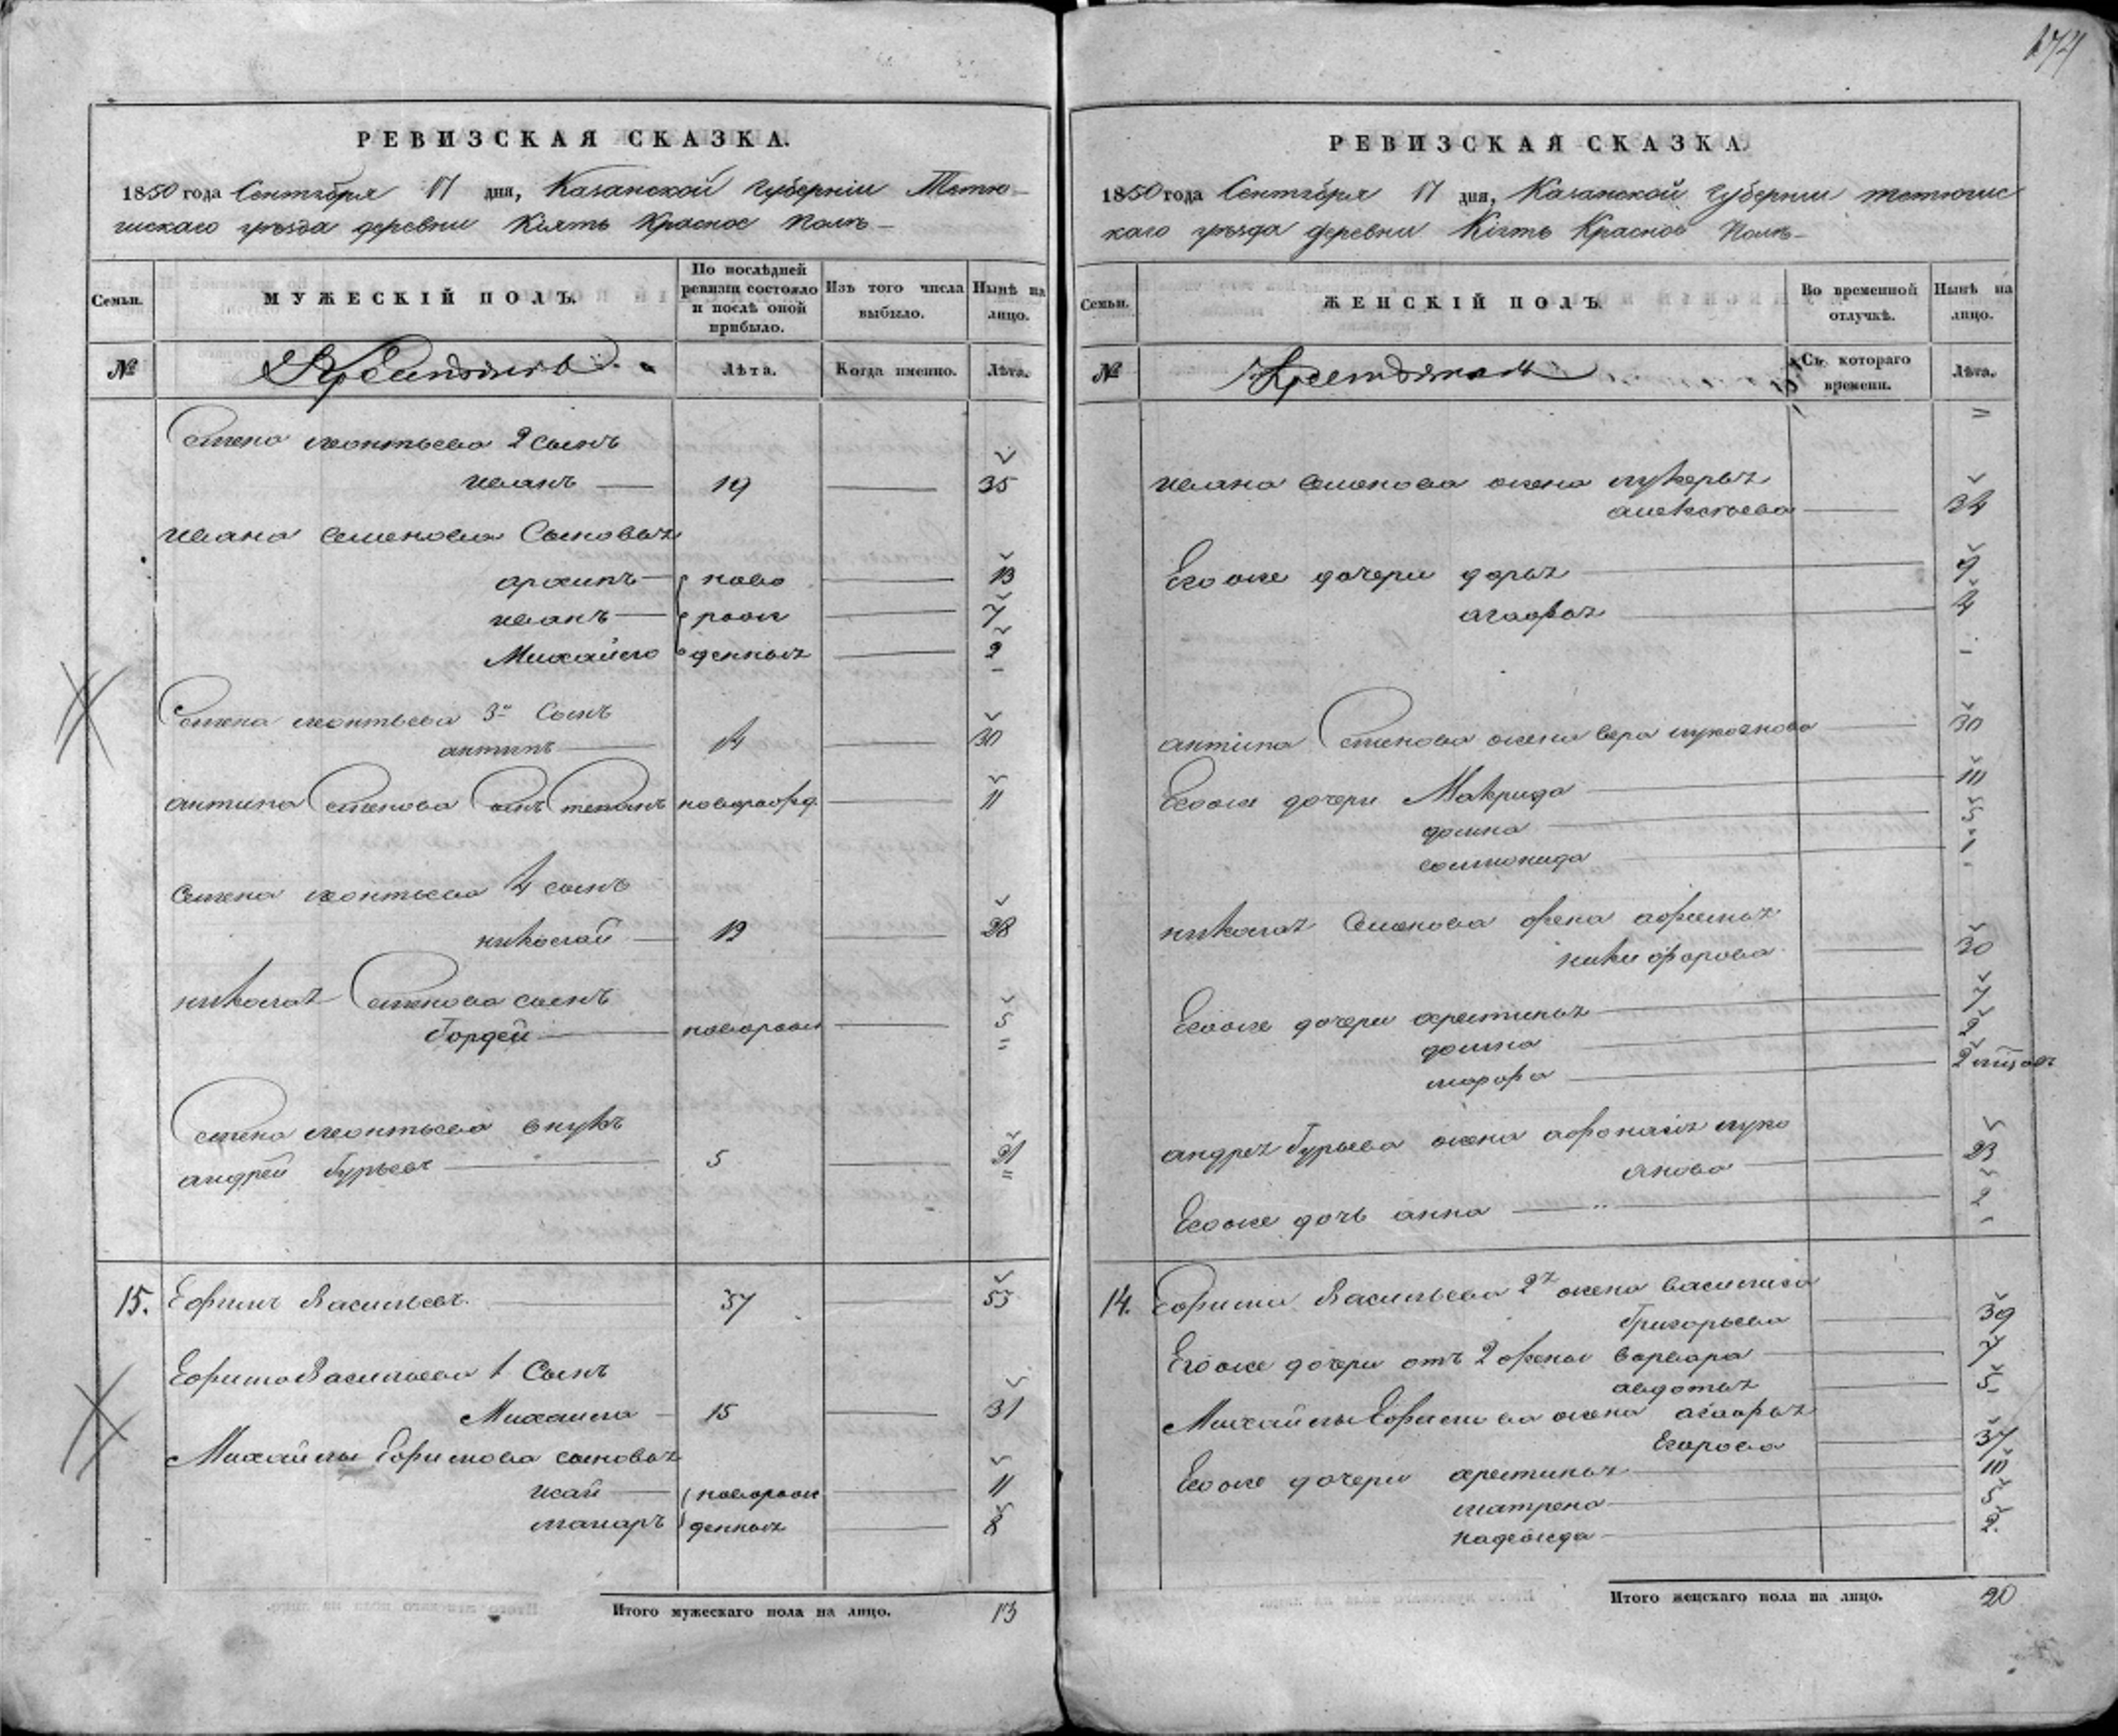 174
РЕВИЗСКАЯ СКАЗКА.
1850 года Сентября 17 дня, Казанской Губернiи Тетю-
шскаго уѣзда деревни Кіять Красное Полѣ-
Семьи.
МУЖЕСКІЙ ПОЛЪ.
По послѣдней ревизіи состояло и послѣ оной прибыло.
Изъ того числа выбыло.
Нынѣ на лицо.
№
Лѣта.
Когда именно.
Лѣта.
Семена леонтьева 2 сынъ
иванъ 19 35
ивана семенова Сыновья
архипъ ново 13
иванъ рож 7
Михайло денныя 2
Семена леонтьева 3й Сынъ
антипъ 14 30
антипа Семенова сынъ степанъ новорожд. 11
семена леонтьева 4 сынъ
николай 12 28
николая Семенова сынъ
Гордей новорож 5
Семена леонтьева внукъ
андрей Гурьевъ 5 21
15. Ефимъ Васильевъ 37 53
Ефима Васильева 1 Сынъ
Михаила 15 31
Михайлы Ефимова сыновья
исай новорож 11
макаръ денныя 8
Итого мужескаго пола на лицо. 13
РЕВИЗСКАЯ СКАЗКА.
1850 года Сентября 17 дня, Казанской Губернии тетюшс
каго уѣзда деревни Кіять Красное Полѣ-
Семьи.
ЖЕНСКІЙ ПОЛЪ
Во временной отлучкѣ.
Нынѣ на лицо.
№
Съ котораго времени.
Лѣта.
ивана семенова жена лукерья
алексѣева 34
Егоже дочери дарья 9
агафья 4
антипа Семенова жена вера лукоянова 30
Егоже дочери Макрида 10
домна 5
соломонида 1
николая Семенова жена афимья
никифорова 30
Егоже дочери хрестинья 7
домна 2
марфа 2 мѣсяц
андрея Гурьева жена афонасія луко
янова 23
Егоже дочь анна 2
14. Ефима Васильева 2я жена василиса
Григорьева 39
Егоже дочери отъ 2 жены варвара 7
авдотья 5
Михайлы Ефимова жена агафья
Егорова 37
Егоже дочери хрестинья 10
матрена 5
надежда 2
Итого женскаго пола на лицо. 20